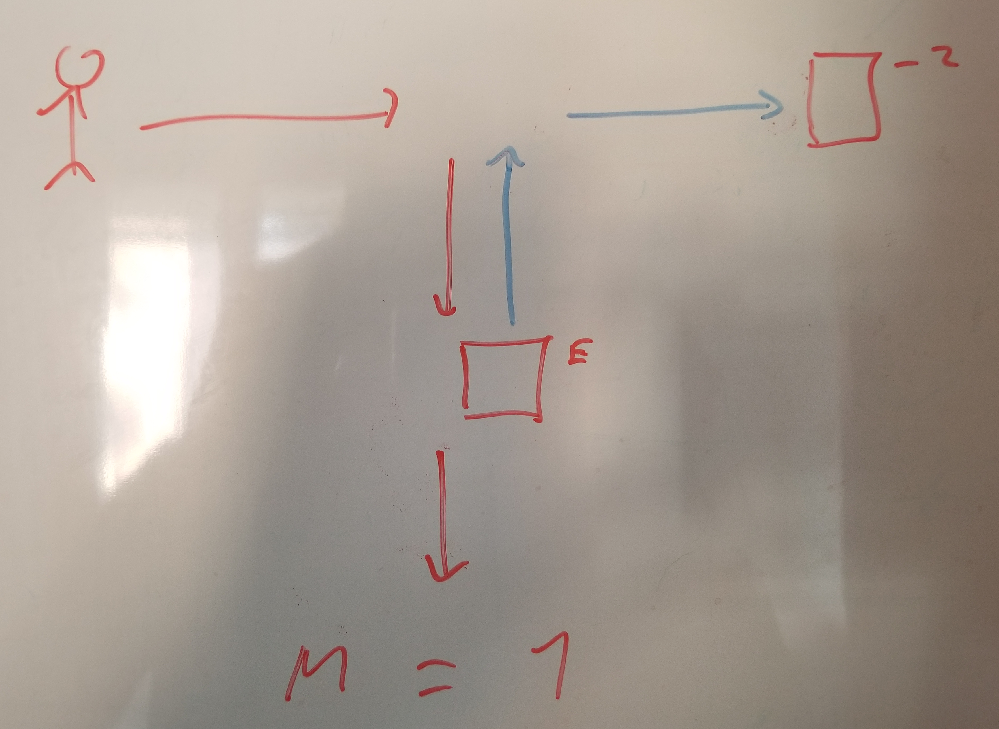 - 2
E
M = 1